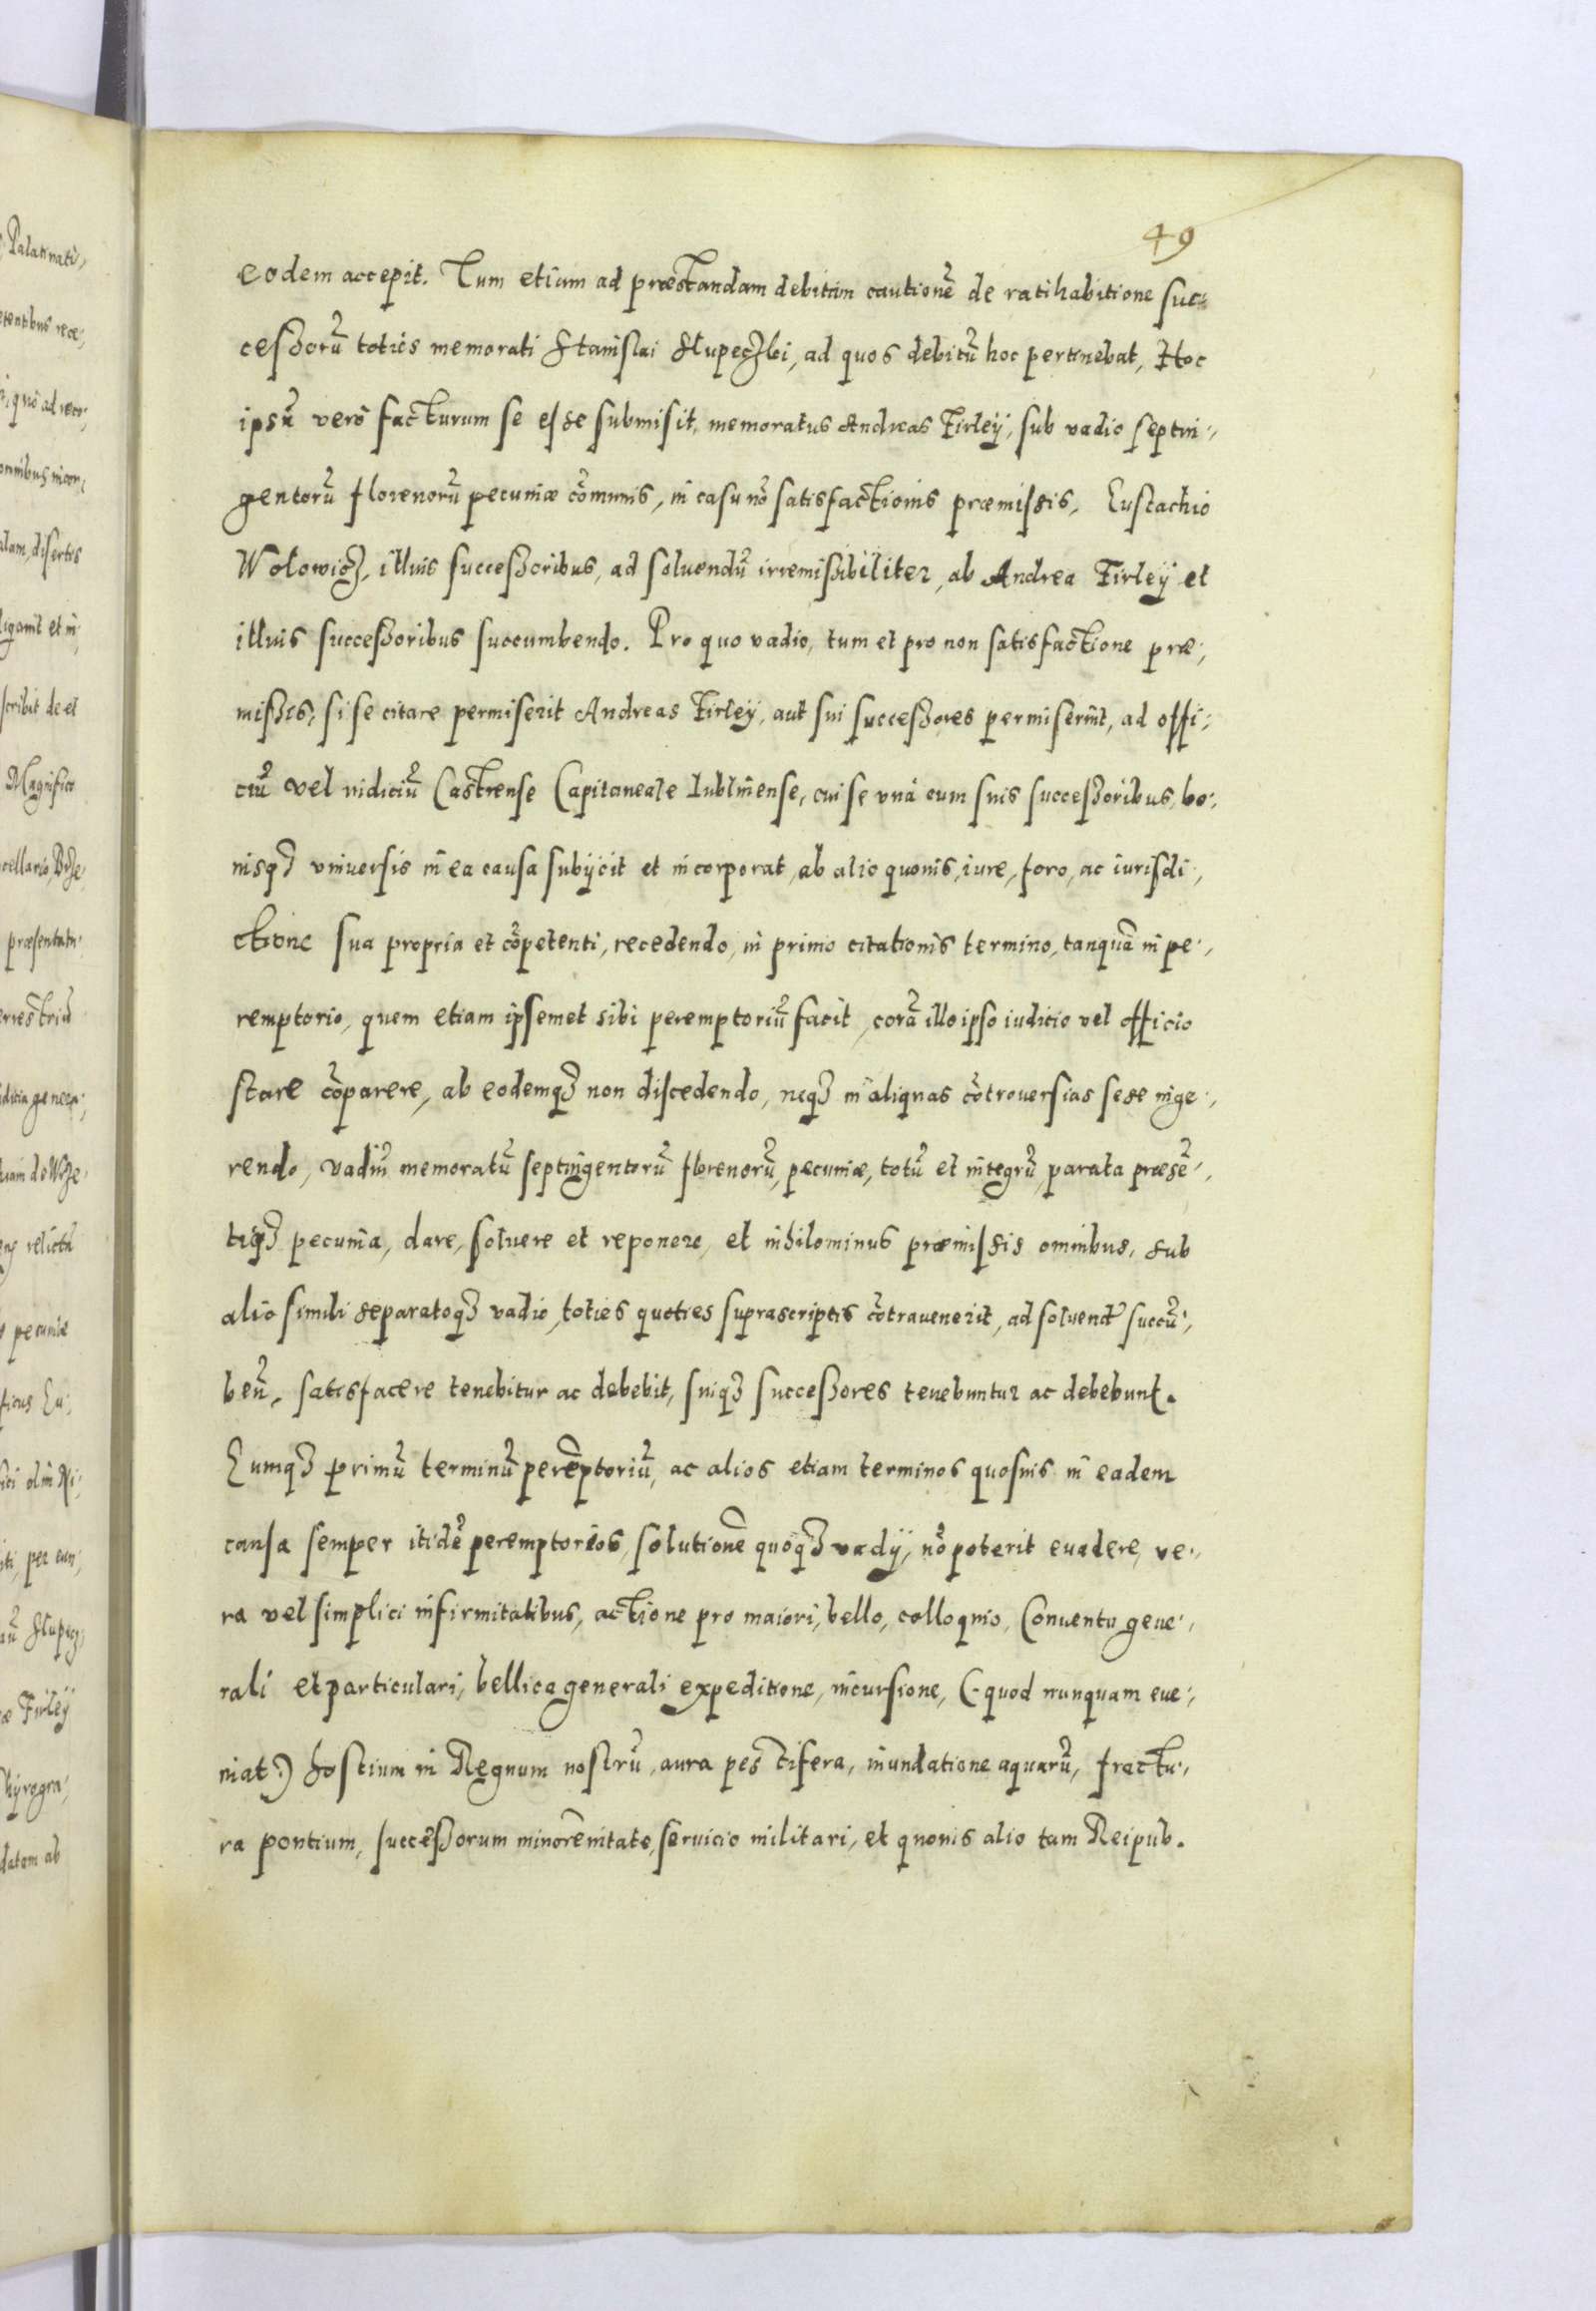 49
eodem accepit. Tum etiam ad præstandam debitam cautionẽ de ratihabitione suc-
cessorũ toties memorati Stanislai Slupeczki, ad quos debitũ hoc pertinebat, Hoc
ipsũ verò facturum se esse submisit, memoratus Andreas Firleÿ, sub vadio septin-
gentorũ florenorũ pecuniæ cõmunis, in casu nõ satisfactionis præmissis, Eustachio
Wolowicz, illius successoribus, ad soluendũ irremissibiliter, ab Andrea Firleÿ et
illius successoribus succumbendo. Pro quo vadio, tum et pro non satisfactione præ-
missis, si se citare permiserit Andreas Firleÿ, aut sui successores permiserint, ad offi-
ciũ vel iudiciũ Castrense Capitaneale lublinense, cui se vnà cum suis successoribus, bo-
nisqȝ vniuersis in ea causa subÿcit et incorporat, ab alio quouis, iure, foro, ac iurisdi-
ctione sua propria et cõpetenti, recedendo, in primo citationis termino, tanquã in pe-
remptorio, quem etiam ipsemet sibi peremptoriũ facit, corã illo ipso iudicio vel officio
stare cõparere, ab eodemqȝ non discedendo, neqȝ in aliquas cõtrouersias sese inge-
rendo, vadiũ memoratũ septingentorũ florenorũ, pecuniæ, totũ et integrũ, parata præsẽ-
tiqȝ pecunia, dare, soluere et reponere, et nihilominus præmissis omnibus, sub
alio simili separatoqȝ vadio, toties quoties suprascriptis cõtrauenerit, ad soluend succũ-
beñ, satisfacere tenebitur ac debebit, suiqȝ successores tenebuntur ac debebunt.
Eumqȝ primũ terminũ perẽptoriũ, ac alios etiam terminos quosuis in eadem
causa semper itidẽ peremptorios, solutionẽ quoqȝ vadÿ, nõ poterit euadere, ve-
ra vel simplici infirmitatibus, actione pro maiori, bello, colloquio, Conuentu gene-
rali et particulari, bellica generali expeditione, incursione, (quod nunquam eue-
niat) hostium in Regnum nostrũ, aura pestifera, inundatione aquarũ, fractu-
ra pontium, successorum minorennitate, seruicio militari, et quouis alio tam Reipub.